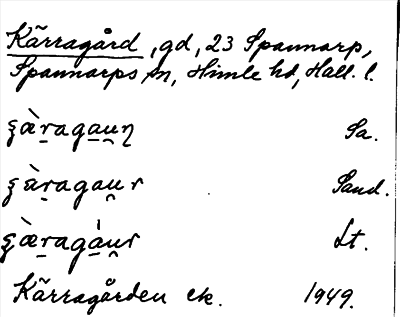 Kärragård, gd, 23 Spannarp,
Spannarps sn, Himle hd, Hall. l.
ʂæ̀ra̱ga̱u̯ɳ Sa.
ʂàra̱gau̯r Sand.
ʂæ̀ra̱gáu̯r Lt.
Kärragården ek. 1949.